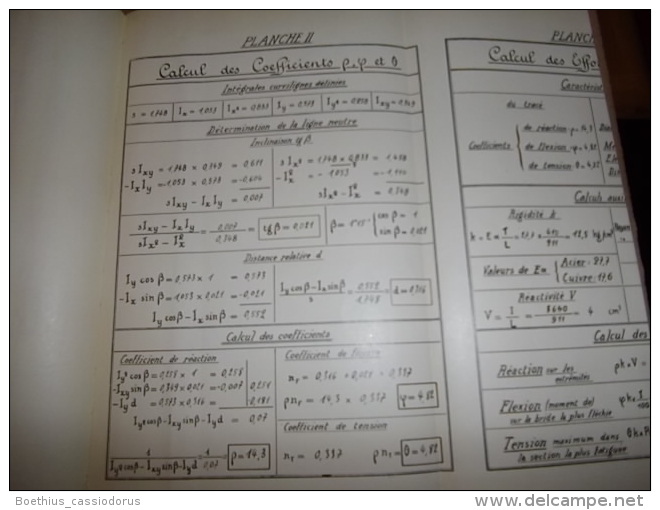 PLANCHE II
Calcul des Coefficients ρ, φ et θ
Intégrales curvilignes définies
s = 1,748 Ix = 1,053 Ix² = 0,833 Iy = 0,573 Iy² = 0,258 Ixy = 0,349
Détermination de la ligne neutre
Inclinaison tg β
s Ixy = 1,748 × 0,349 = 0,611
-Ix Iy = 1,053 × 0,573 = -0,604
s Ixy - Ix Iy = 0,007
s Ix² = 1,748 × 0,833 = 1,458
s Ix² - Ix² = 0,348
s Ixy - Ix Iy / s Ix² - Ix² = 0,007 / 0,348 = tg β = 0,021
cos β = 1
sin β = 0,021
Distance relative d
Iy cos β = 0,573 × 1 = 0,573
-Ix sin β = 1053 × 0,021 = -0,021
Iy cos β - Ix sin β = 0,552
Iy cos β - Ix sin β / s = 0,552 / 1,748 = d = 0,316
Calcul des coefficients
Coefficient de réaction
Iy² cos β = 0,258 × 1 = 0,258
-Ixy sin β = 0,349 × 0,021 = -0,007 0,251
-Iy d = 0,573 × 0,316 = 0,181
Iy² cos β - Ixy sin β - Iy d = 0,07
1 / Iy² cos β - Ixy sin β - Iy d = 1 / 0,07 ρ = 14,3
Coefficient de flexion
0,316 + 0,021 = 0,337
14,3 × 0,337 φ = 4,82
Coefficient de tension
= 0,337 θ = 4,82
PLANC
Calcul des Effo
Caractérist
du tracé
Coefficients
de réaction ρ = 14,3
de flexion φ = 4,82
de tension θ = 4,82
Calculs aux
Rigidité k
Valeurs de E =
Acier = 21,7
Cuivre : 12,6
Réactivité V
V = I / L = 3640 / 911 = 4 cm³
Calcul des
Réaction sur les
extrémités
ρk × V =
Flexion (moment de)
sur la bride la plus fléchie
Tension maximum dans
la section la plus fatiguée
Boethius_cassiodorus
delcampe.net